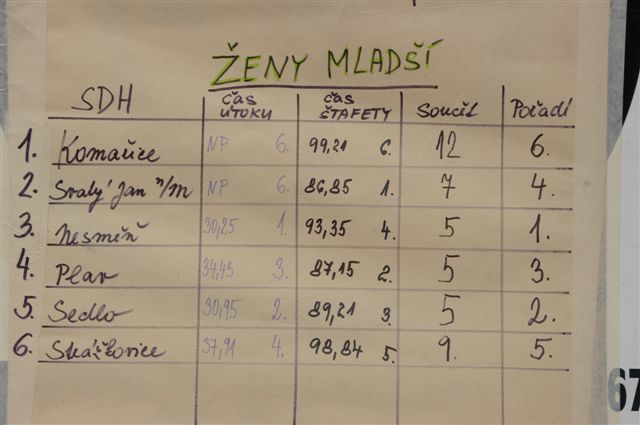 ŽENY MLADŠÍ
SDH čas ÚTOKU čas ŠTAFETY Součet Pořadí
1. Komařice NP 6. 99,21 6. 12 6.
2. Svatý Jan n/M NP 6. 86,85 1. 7 4.
3. Nesměň 30,25 1. 93,35 4. 5 1.
4. Plav 34,43 3. 87,15 2. 5 3.
5. Sedlo 30,95 2. 89,21 3. 5 2.
6. 37,91 4. 98,84 5. 9. 5.
67